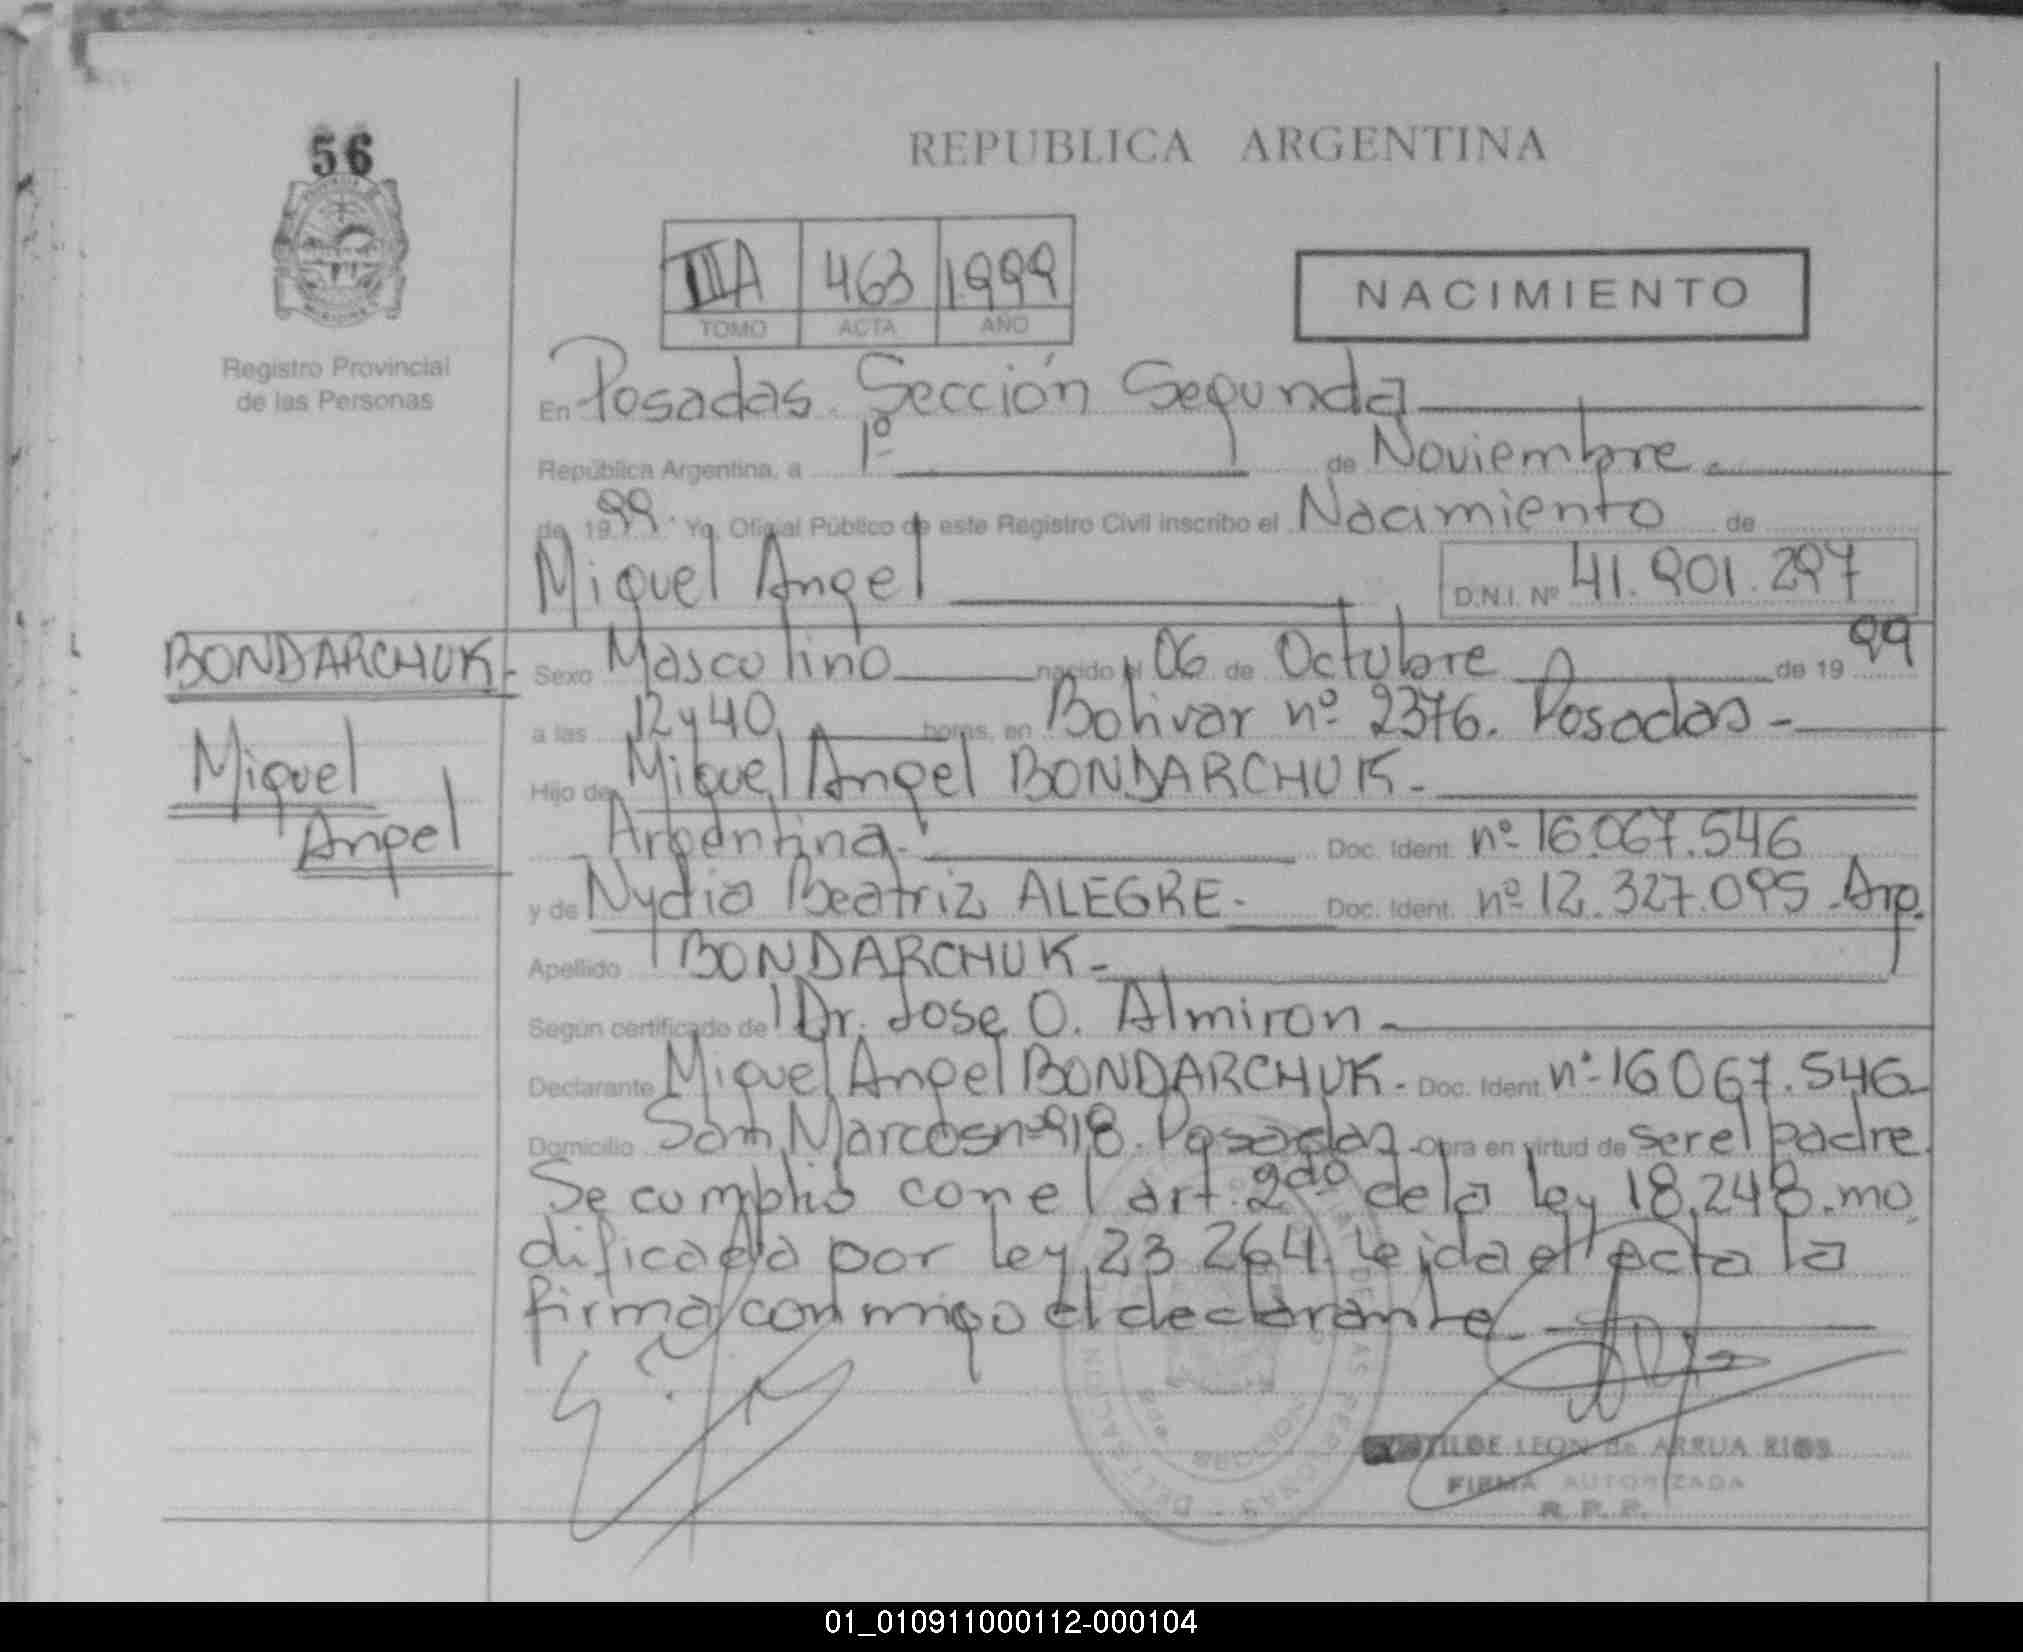 56
REPUBLICA ARGENTINA
IIIA 463 1999
TOMO ACTA AÑO
NACIMIENTO
Registro Provincial
de las Personas
En Posadas. Sección Segunda
República Argentina, a 1º de Noviembre
de 1999. Yo, Oficial Público de este Registro Civil inscribo el Nacimiento de
Miguel Angel D.N.I. Nº 41.901.297
BONDARCHUK-
Miguel
Angel
Sexo Masculino nacido el 06 de Octubre de 1999
a las 12 y 40 horas, en Bolivar nº 2376. Posadas-
Hijo de Miguel Angel BONDARCHUK-
Argentina- Doc. Ident. nº 16.067.546
y de Nydia Beatriz ALEGRE- Doc. Ident. nº 12.327.095-Arg.
Apellido BONDARCHUK-
Según certificado de Dr. Jose O. Almiron-
Declarante Miguel Angel BONDARCHUK- Doc. Ident. nº 16067.546
Domicilio San Marcos nº 918. Posadas Obra en virtud de ser el padre
Se cumplió con el art. 2do de la ley 18.248.mo
dificada por ley 23 264. Leida el acta la
firma conmigo el declarante
LEON de ARRUA RIOS
FIRMA AUTORIZADA
R. P. P.
01_010911000112-000104